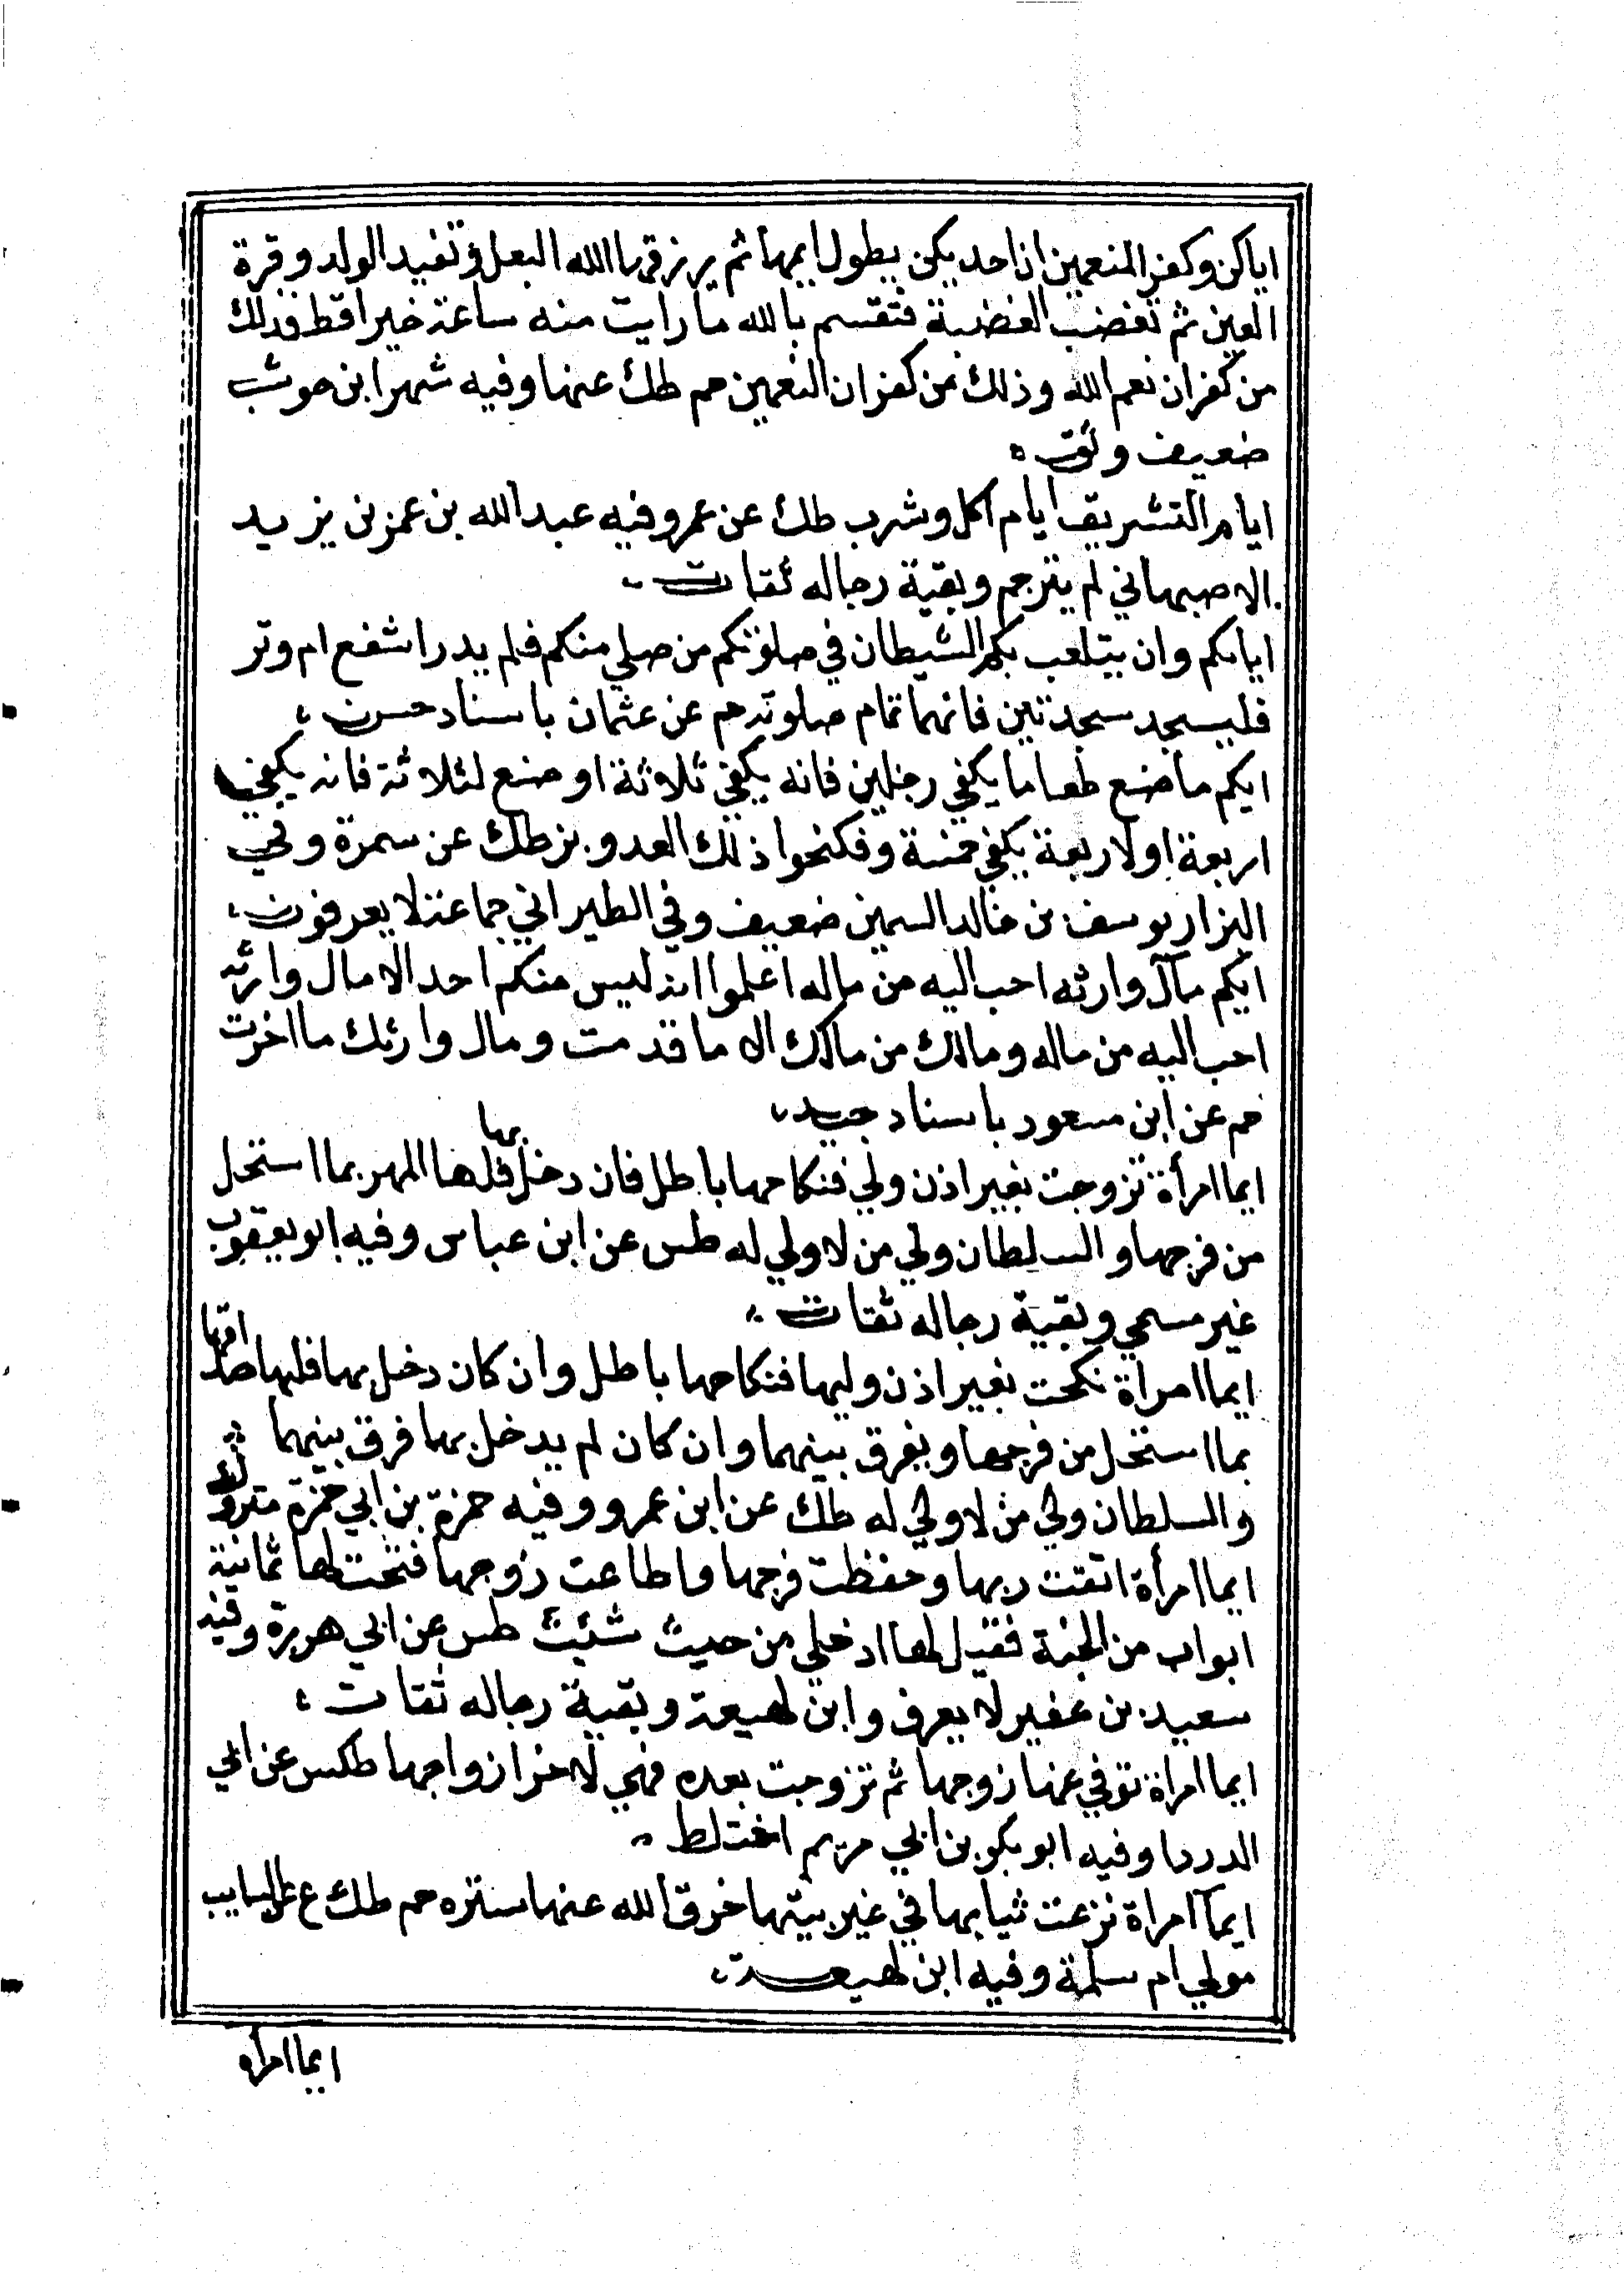 اياكن وكفر المنعمين ان احديكن يطول ايمها ثم يرزقها الله البعل وتفيد الولد وقرة
العين ثم تغضب الغضبة فتقسم بالله ما رايت منه ساعة خيرا قط فذلك
من كفران نعم الله وذلك من كفران النعمين حم طك عنها وفيه شهر ابن حوشب
ضعيف وثق
ايام التشريق ايام اكل وشرب طك عن عمر وفيه عبد الله بن عمر بن يزيد
الاصبهاني لم يترجم وبقية رجاله ثقات
اياكم وان يتلعب بكم الشيطان في صلوتكم من صلي منكم فلم يدر اشفع ام وتر
فليسجد سجدتين فانهما تمام صلوته حم عن عثمان باسناد حسن
ايكم ما صنع طعاما يكفي رجلين فانه يكفي ثلاثة او صنع لثلاثة فانه يكفي
اربعة او لاربعة يكفي خمسة وفكنحوا ذلك العدو بز طك عن سمرة وفي
البزار يوسف بن خالد السمين ضعيف وفي الطبراني جماعة لا يعرفون
ايكم مال وارثه احب اليه من ماله اعلموا انه ليس منكم احد الا مال وارثه
احب اليه من ماله ومالك من مالك الا ما قدمت ومال وارثك ما اخرت
حم عن ابن مسعود باسناد جيد
ايما امرأة تزوجت بغير اذن ولي فنكاحها باطل فان دخل بها فلها المهر بما استحل
من فرجها والسلطان ولي من لا ولي له طس عن ابن عباس وفيه ابو يعقوب
غير مسمي وبقية رجاله ثقات
ايما امراة نكحت بغير اذن وليها فنكاحها باطل وان كان دخل بها فلها صداقها
بما استحل من فرجها ويفرق بينهما وان كان لم يدخل بها فرق بينهما
والسلطان ولي من لا ولي له طك عن ابن عمرو وفيه حمزة بن ابي حمزة متروك
ايما امرأة اتقت ربها وحفظت فرجها واطاعت زوجها فتحت لها ثمانية
ابواب من الجنة فقيل لها ادخلي من حيث شئت طس عن ابي هريرة وفيه
سعيد بن عفير لا يعرف وابن لهيعة وبقية رجاله ثقات
ايما امراة توفي عنها زوجها ثم تزوجت بعده فهي لاخر ازواجها طكس عن ابي
الدردا وفيه ابو بكر بن ابي مريم اختلط
ايما امراة نزعت ثيابها في غير بيتها خرق الله عنها ستره حم طك ع عن السايب
مولي ام سلمة وفيه ابن لهيعة
ايما امرأة